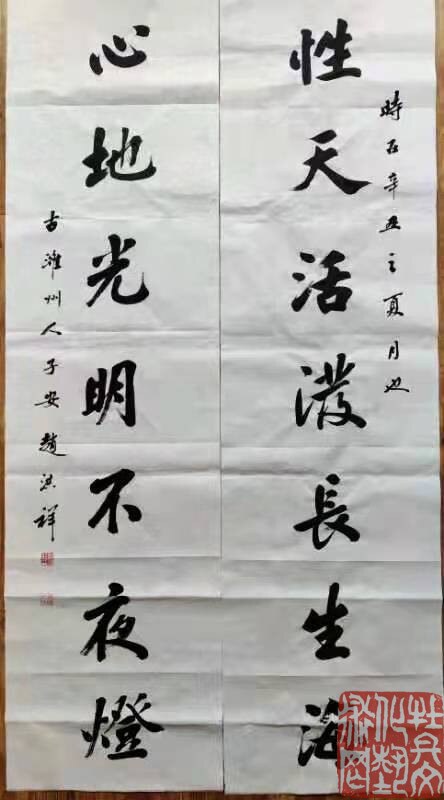 性天活潑長生海
時在辛丑之夏月也
心地光明不夜燈
古濰州人子安趙洪祥